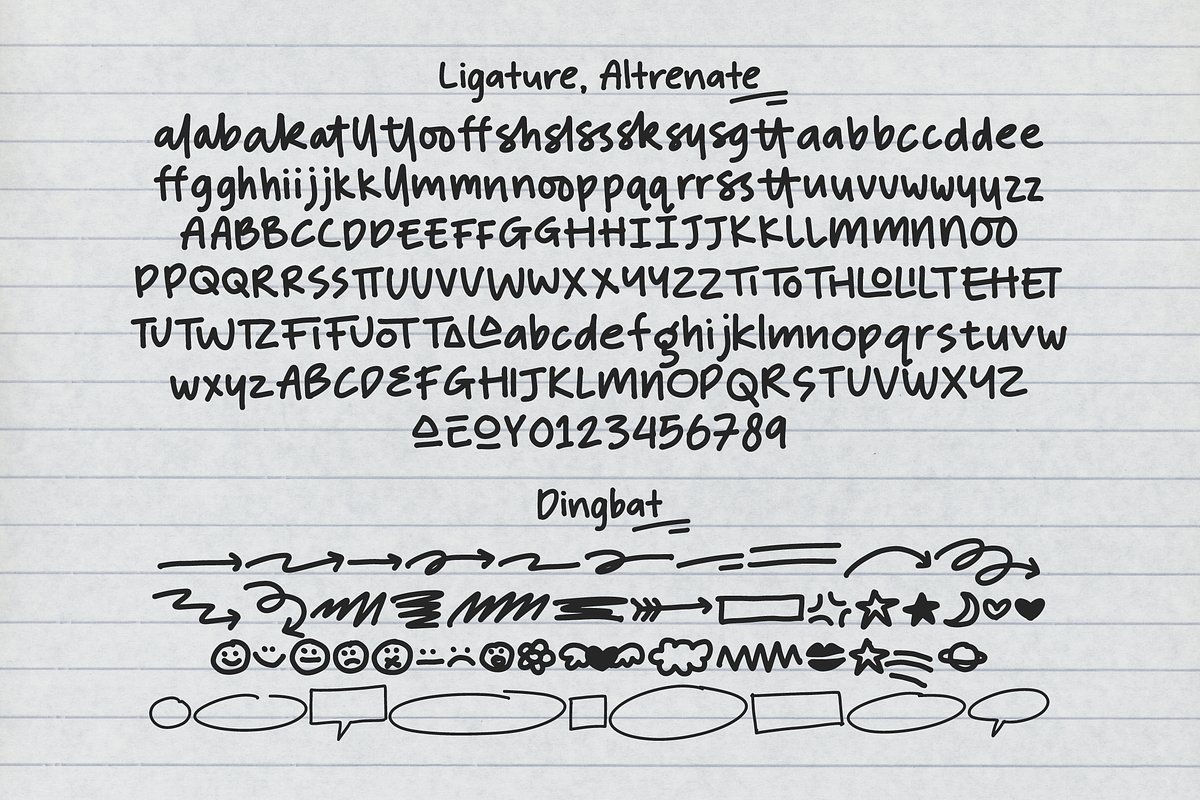 Ligature, Altrenate
alabakatlltlooffshslsssksysgttaabbccddee
ffgghhiijjkkllmmnnooppqqrrssttuuvvwwyyzz
AABBCCDDEEFFGGHHIIJJKKLLMMNNOO
PPQQRRSSTTUUVVWWXXYYZZTITOTHLOLILTEHET
TUTWTZFIFUOTTALAabcdefghijklmnopqrstuvw
wxyzABCDEFGHIJKLMNOPQRSTUVWXYZ
AEOY0123456789
Dingbat